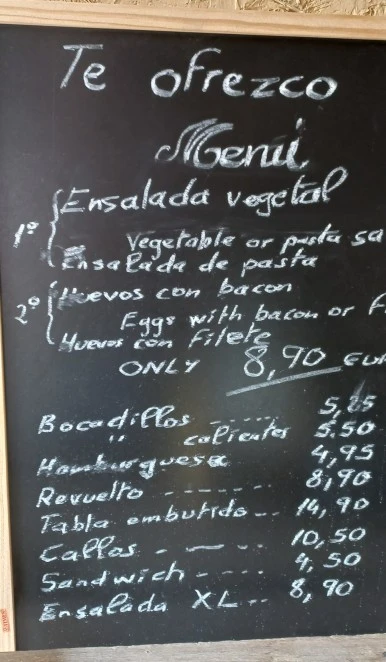 Te ofrezco
Menú
1º Ensalada vegetal
Vegetable or pasta sa
Ensalada de pasta
2º Huevos con bacon
Eggs with bacon or F
Huevos con Filete
ONLY 8,90 EUR
Bocadillos ------ 5,25
" calientes 5.50
Hamburguesa 4,95
Revuelto ------- 8,90
Tabla embutido -- 14,90
Callos - --- -- 10,50
Sandwich ---- 4,50
Ensalada XL -- 8,90